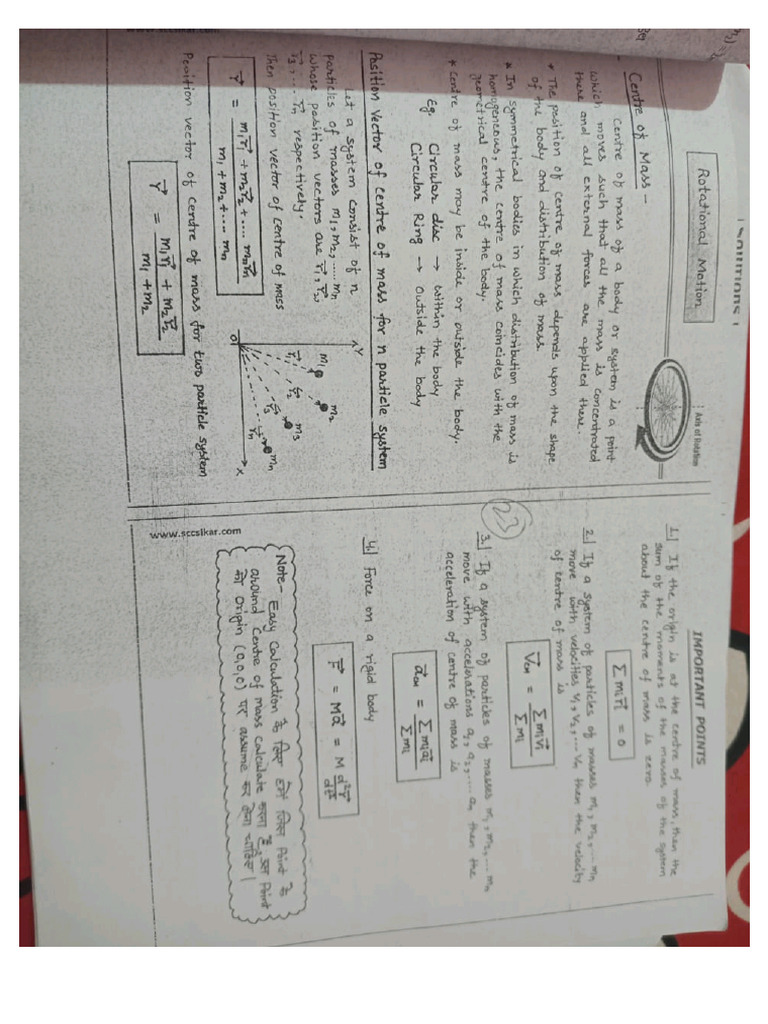 Rotational Motion
Axis of Rotation
Centre of Mass -
Centre of mass of a body or system is a point
which moves such that all the mass is concentrated
there and all external forces are applied there.
* The position of centre of mass depends upon the shape
of the body and distribution of mass.
* In symmetrical bodies in which distribution of mass is
homogeneous, the centre of mass coincides with the
geometrical centre of the body.
* Centre of mass may be inside or outside the body.
Eg. Circular disc → within the body
Circular Ring → Outside the body
Position Vector of centre of mass for n particle system
Let a system consist of n
particles of masses m₁, m₂, ..... mₙ
whose position vectors are r⃗₁, r⃗₂,
r⃗₃, .... r⃗ₙ respectively.
Then position vector of centre of mass
r⃗ = (m₁r⃗₁ + m₂r⃗₂ + .... mₙr⃗ₙ) / (m₁ + m₂ + .... mₙ)
Y
m₁
m₂
m₃
mₙ
r⃗₁
r⃗₂
r⃗₃
r⃗ₙ
O
X
Position vector of centre of mass for two particle system
r⃗ = (m₁r⃗₁ + m₂r⃗₂) / (m₁ + m₂)
www.sccsikar.com
IMPORTANT POINTS
1. If the origin is at the centre of mass, then the
sum of the moments of the masses of the system
about the centre of mass is zero.
Σ mᵢr⃗ᵢ = 0
2. If a system of particles of masses m₁, m₂, ... mₙ
move with velocities v₁, v₂, ... vₙ then the velocity
of centre of mass is
V⃗cm = Σ mᵢv⃗ᵢ / Σ mᵢ
23
3. If a system of particles of masses m₁, m₂, ... mₙ
move with accelerations a₁, a₂, .... aₙ then the
acceleration of centre of mass is
a⃗cm = Σ mᵢa⃗ᵢ / Σ mᵢ
4. Force on a rigid body
F⃗ = Ma⃗ = M d²r⃗/dt²
Note- Easy Calculation के लिए हमें जिस Point के
around Centre of mass Calculate करना है, उस Point
को Origin (0,0,0) पर assume कर लेना चाहिए।
www.sccsikar.com